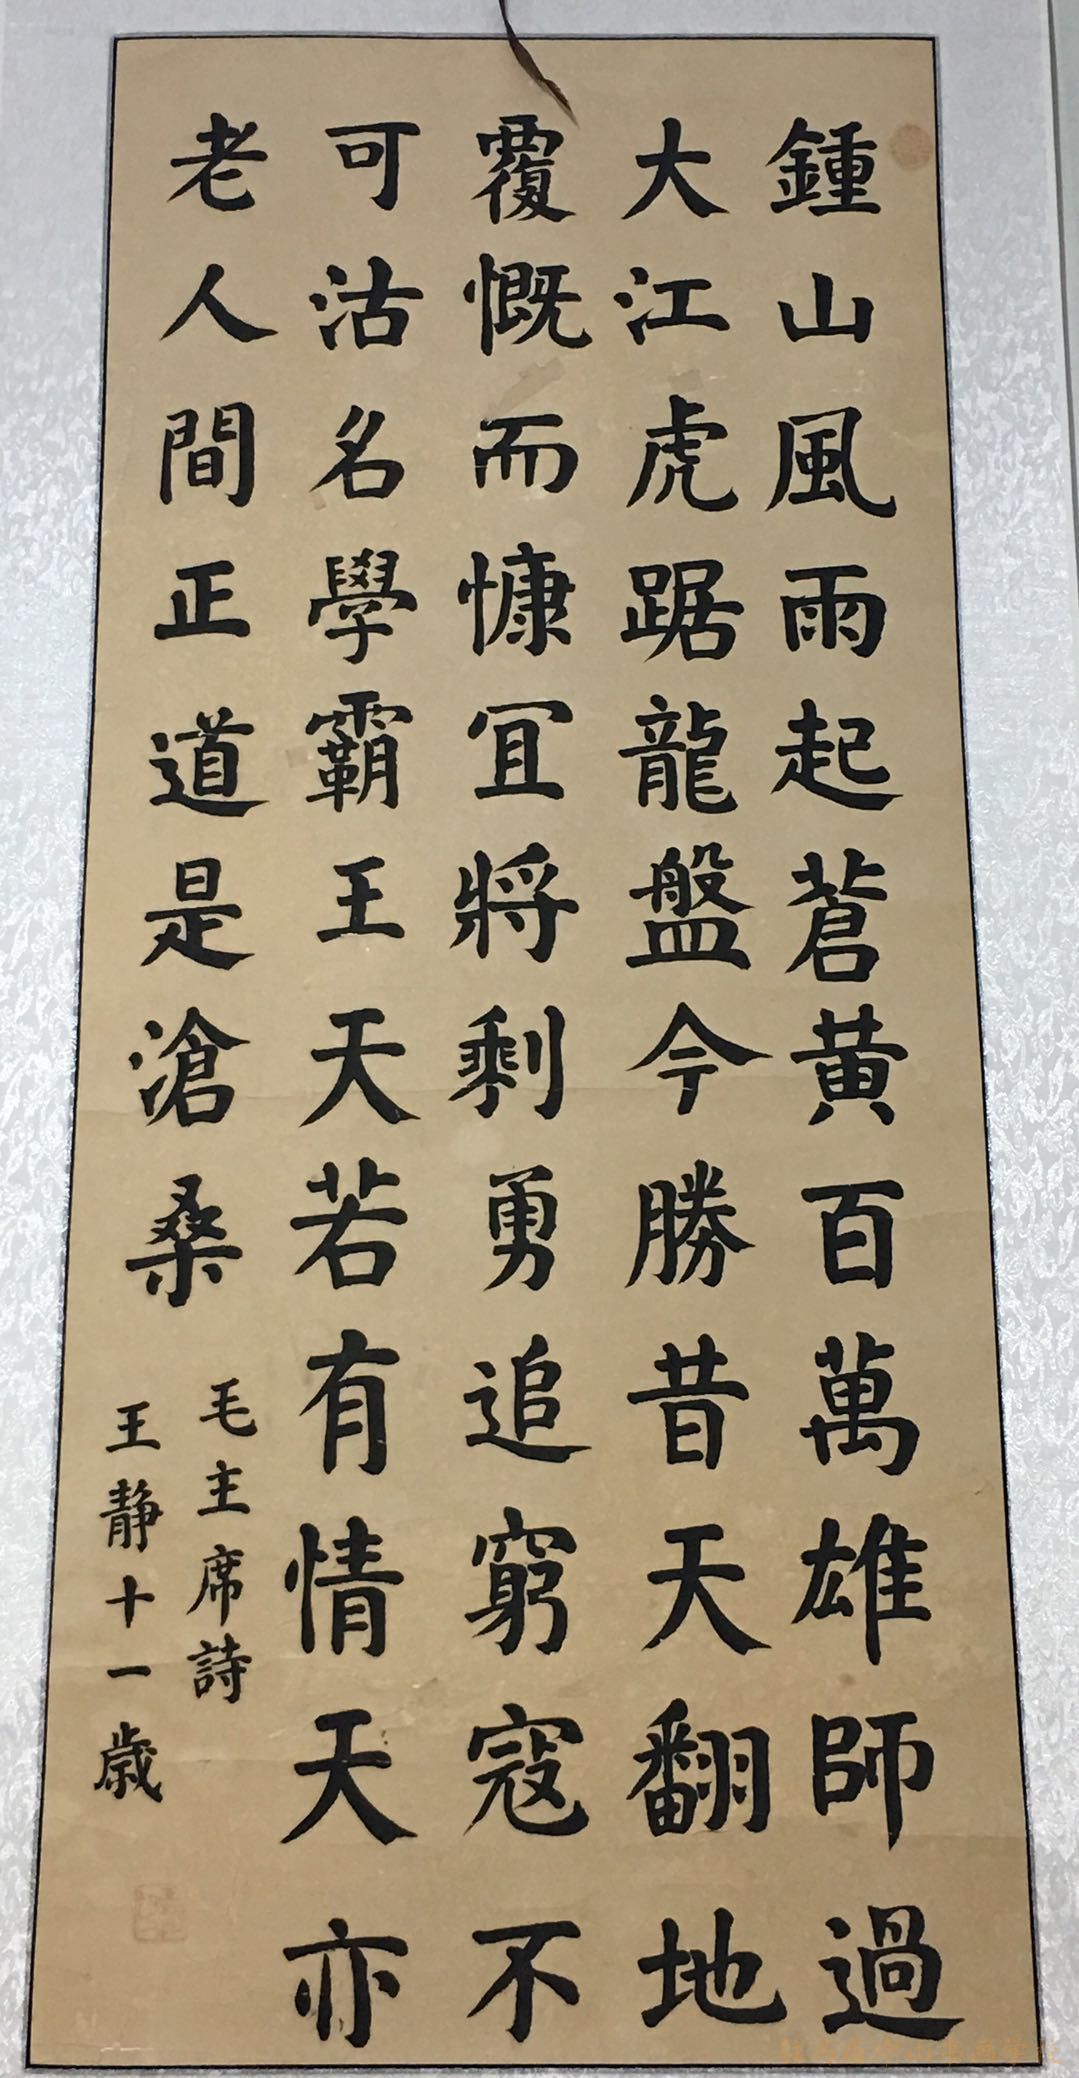 鍾山風雨起蒼黃百萬雄師過
大江虎踞龍盤今勝昔天翻地
覆慨而慷宜將剩勇追窮寇不
可沽名學霸王天若有情天亦
老人間正道是滄桑
毛主席詩
王靜十一歲